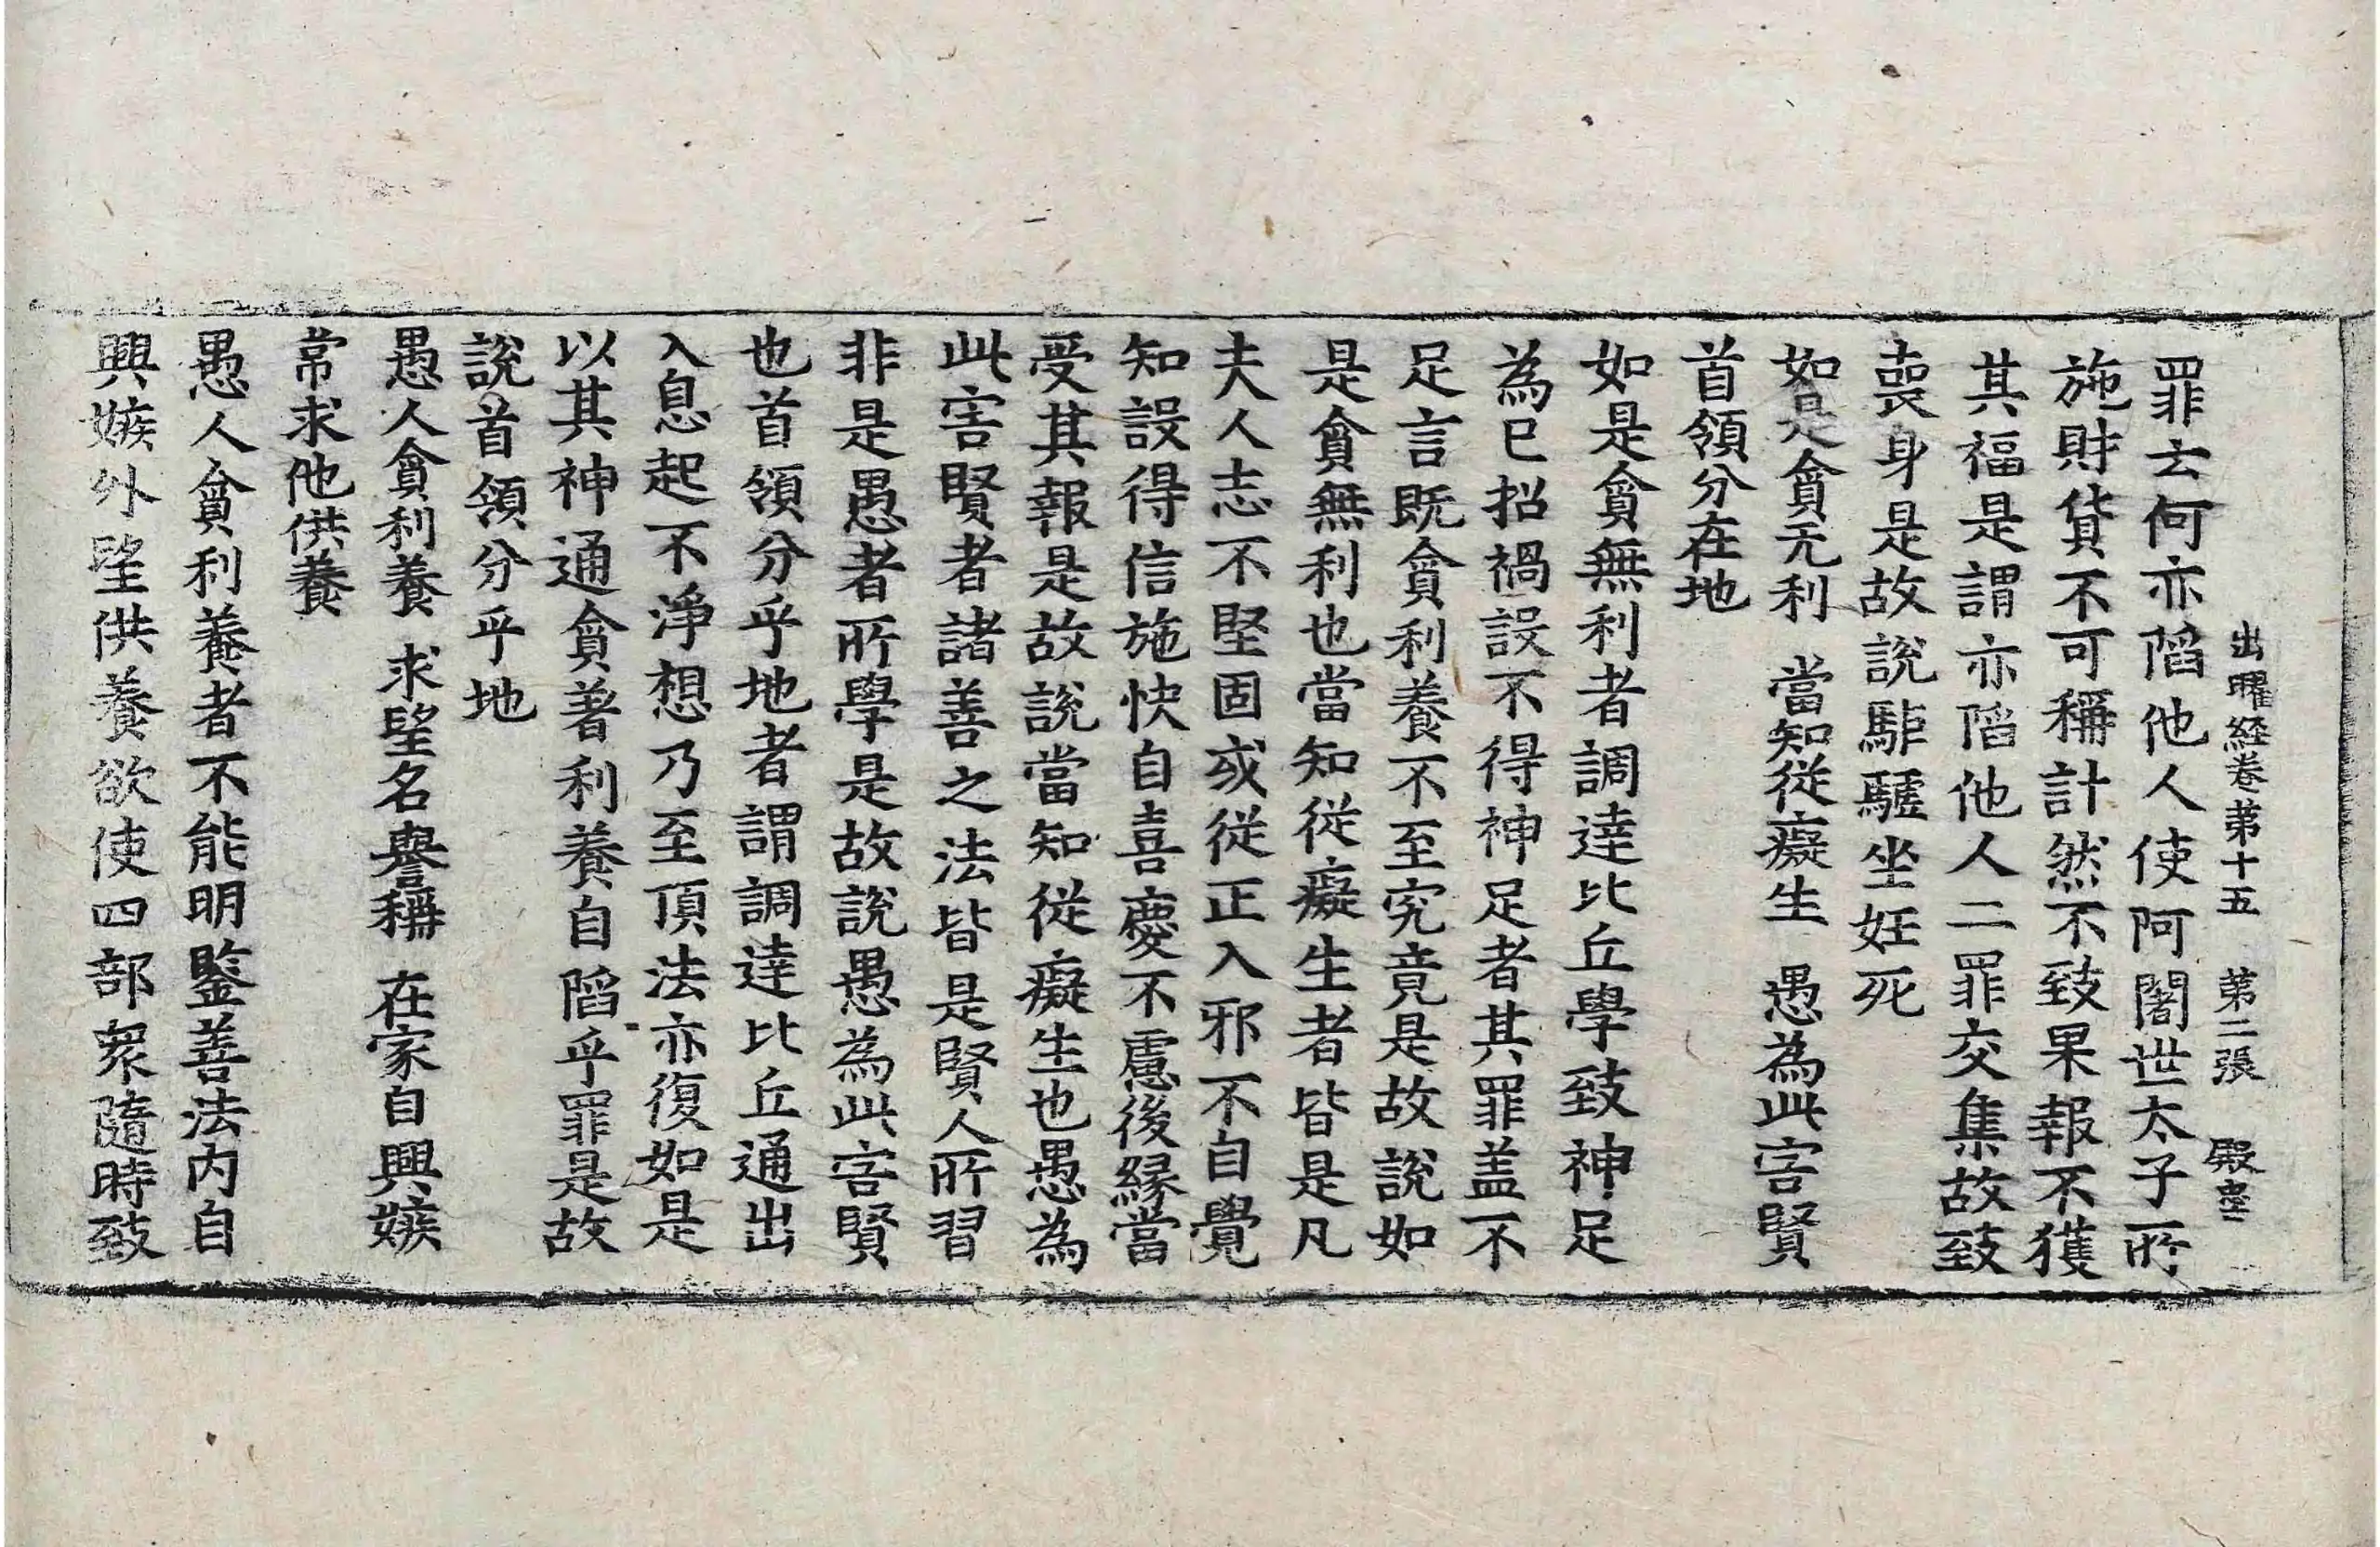 出曜経卷第十五　第二張　殿
罪云何亦陷他人使阿闍世太子所
施財貨不可稱計然不致果報不獲
其福是謂亦陷他人二罪交集故致
喪身是故說駏驉坐妊死
如是貪无利　當知從癡生　愚為此害賢
首領分在地
如是貪無利者調達比丘學致神足
為已招禍設不得神足者其罪盖不
足言既貪利養不至究竟是故說如
是貪無利也當知從癡生者皆是凡
夫人志不堅固或從正入邪不自覺
知設得信施快自喜慶不慮後緣當
受其報是故說當知從癡生也愚為
此害賢者諸善之法皆是賢人所習
非是愚者所學是故說愚為此害賢
也首領分乎地者謂調達比丘通出
入息起不淨想乃至頂法亦復如是
以其神通貪著利養自陷乎罪是故
說首領分乎地
愚人貪利養　求望名譽稱　在家自興嫉
常求他供養
愚人貪利養者不能明鑒善法內自
興嫉外望供養欲使四部衆隨時致